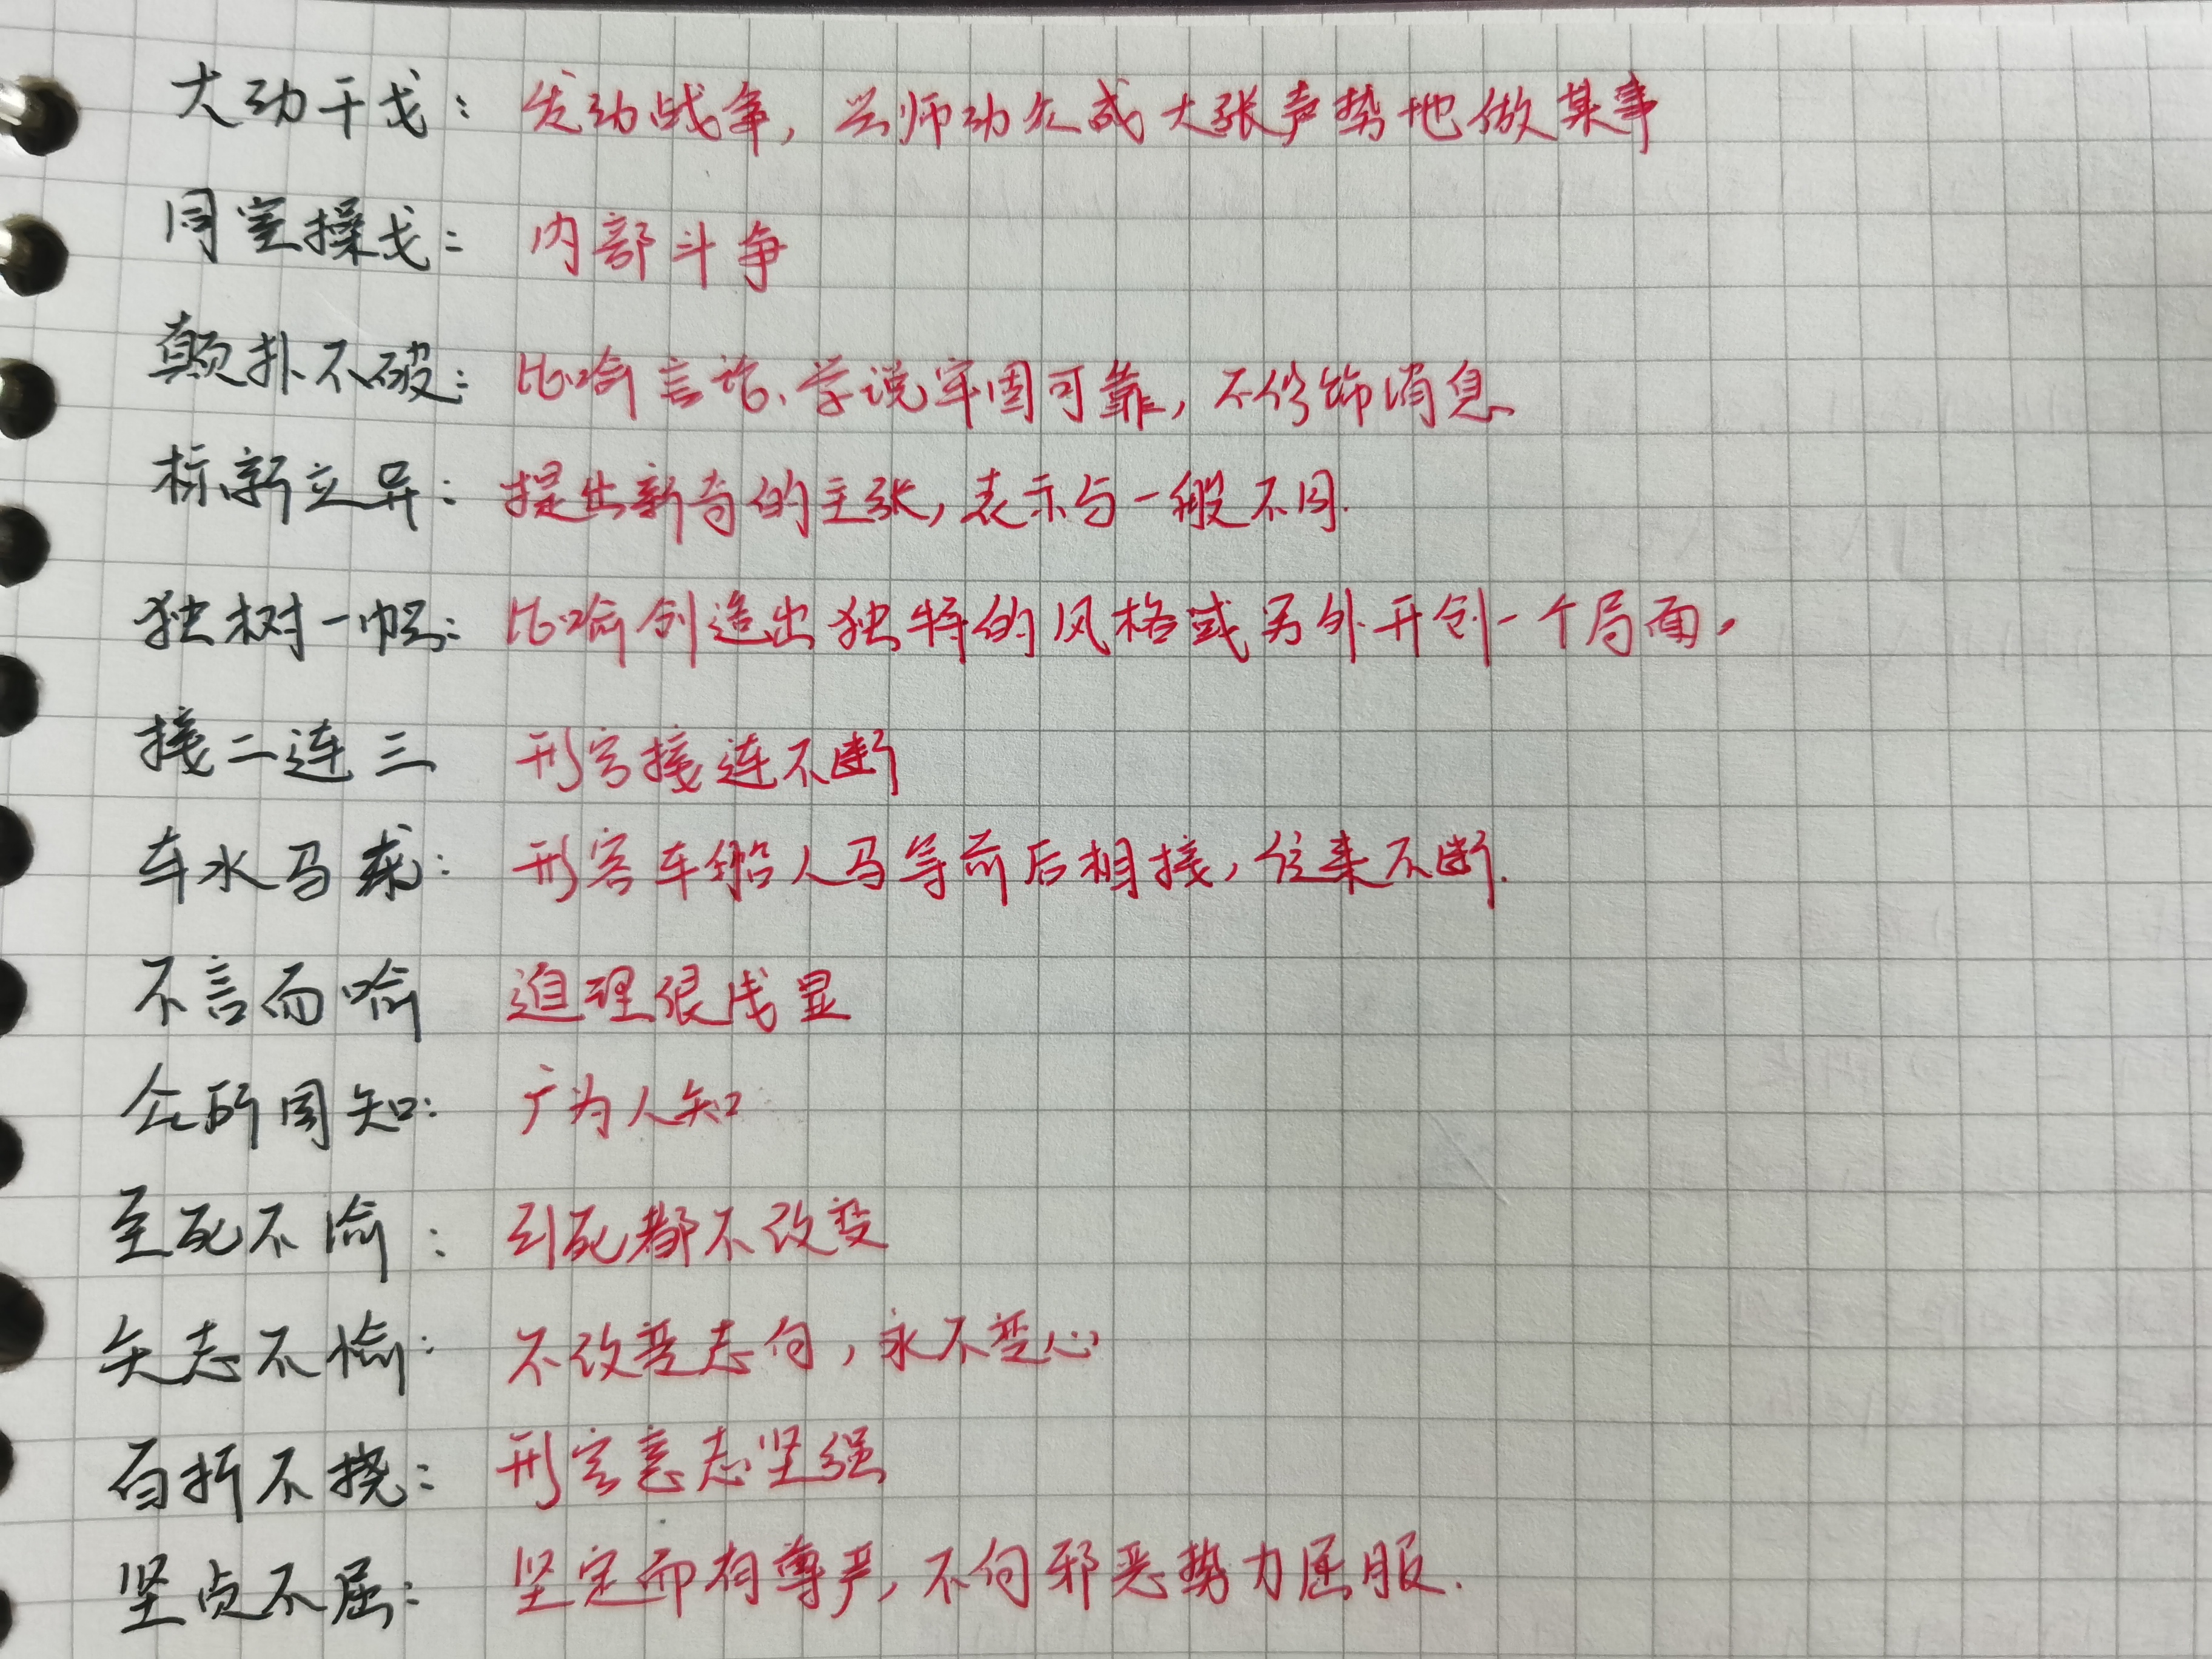 大动干戈：发动战争，兴师动众或大张声势地做某事
同室操戈：内部斗争
颠扑不破：比喻言论、学说牢固可靠，不修饰消息
标新立异：提出新奇的主张，表示与一般不同.
独树一帜：比喻创造出独特的风格或另外开创一个局面，
接二连三 形容接连不断
车水马龙：形容车船人马等前后相接，往来不断.
不言而喻 道理很浅显
众所周知：广为人知
至死不渝：到死都不改变
矢志不愉：不改变志向，永不变心
百折不挠：形容意志坚强
坚贞不屈：坚定而有尊严，不向邪恶势力屈服.